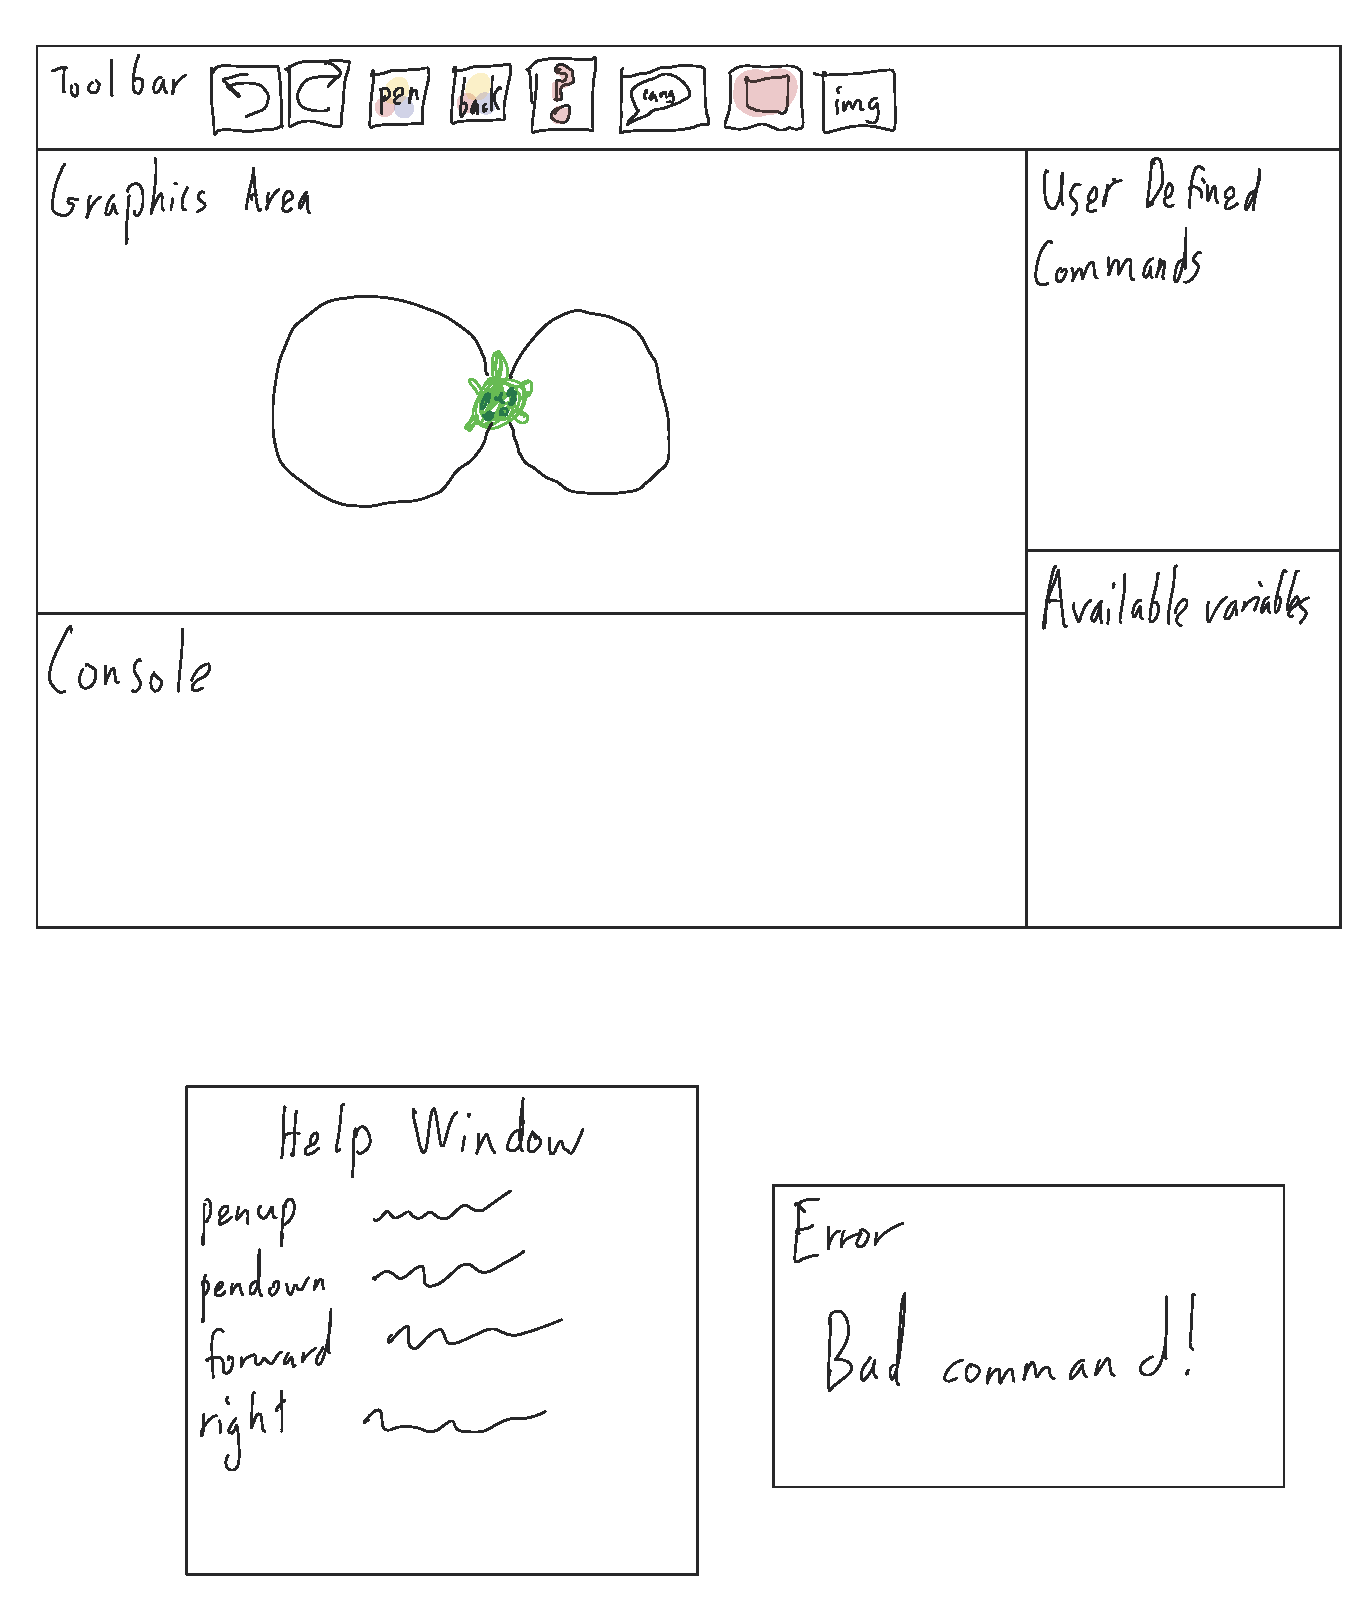 Toolbar
pen
back
?
lang
img
Graphics Area
User Defined
Commands
Available variables
Console
Help Window
penup
pendown
forward
right
Error
Bad command!